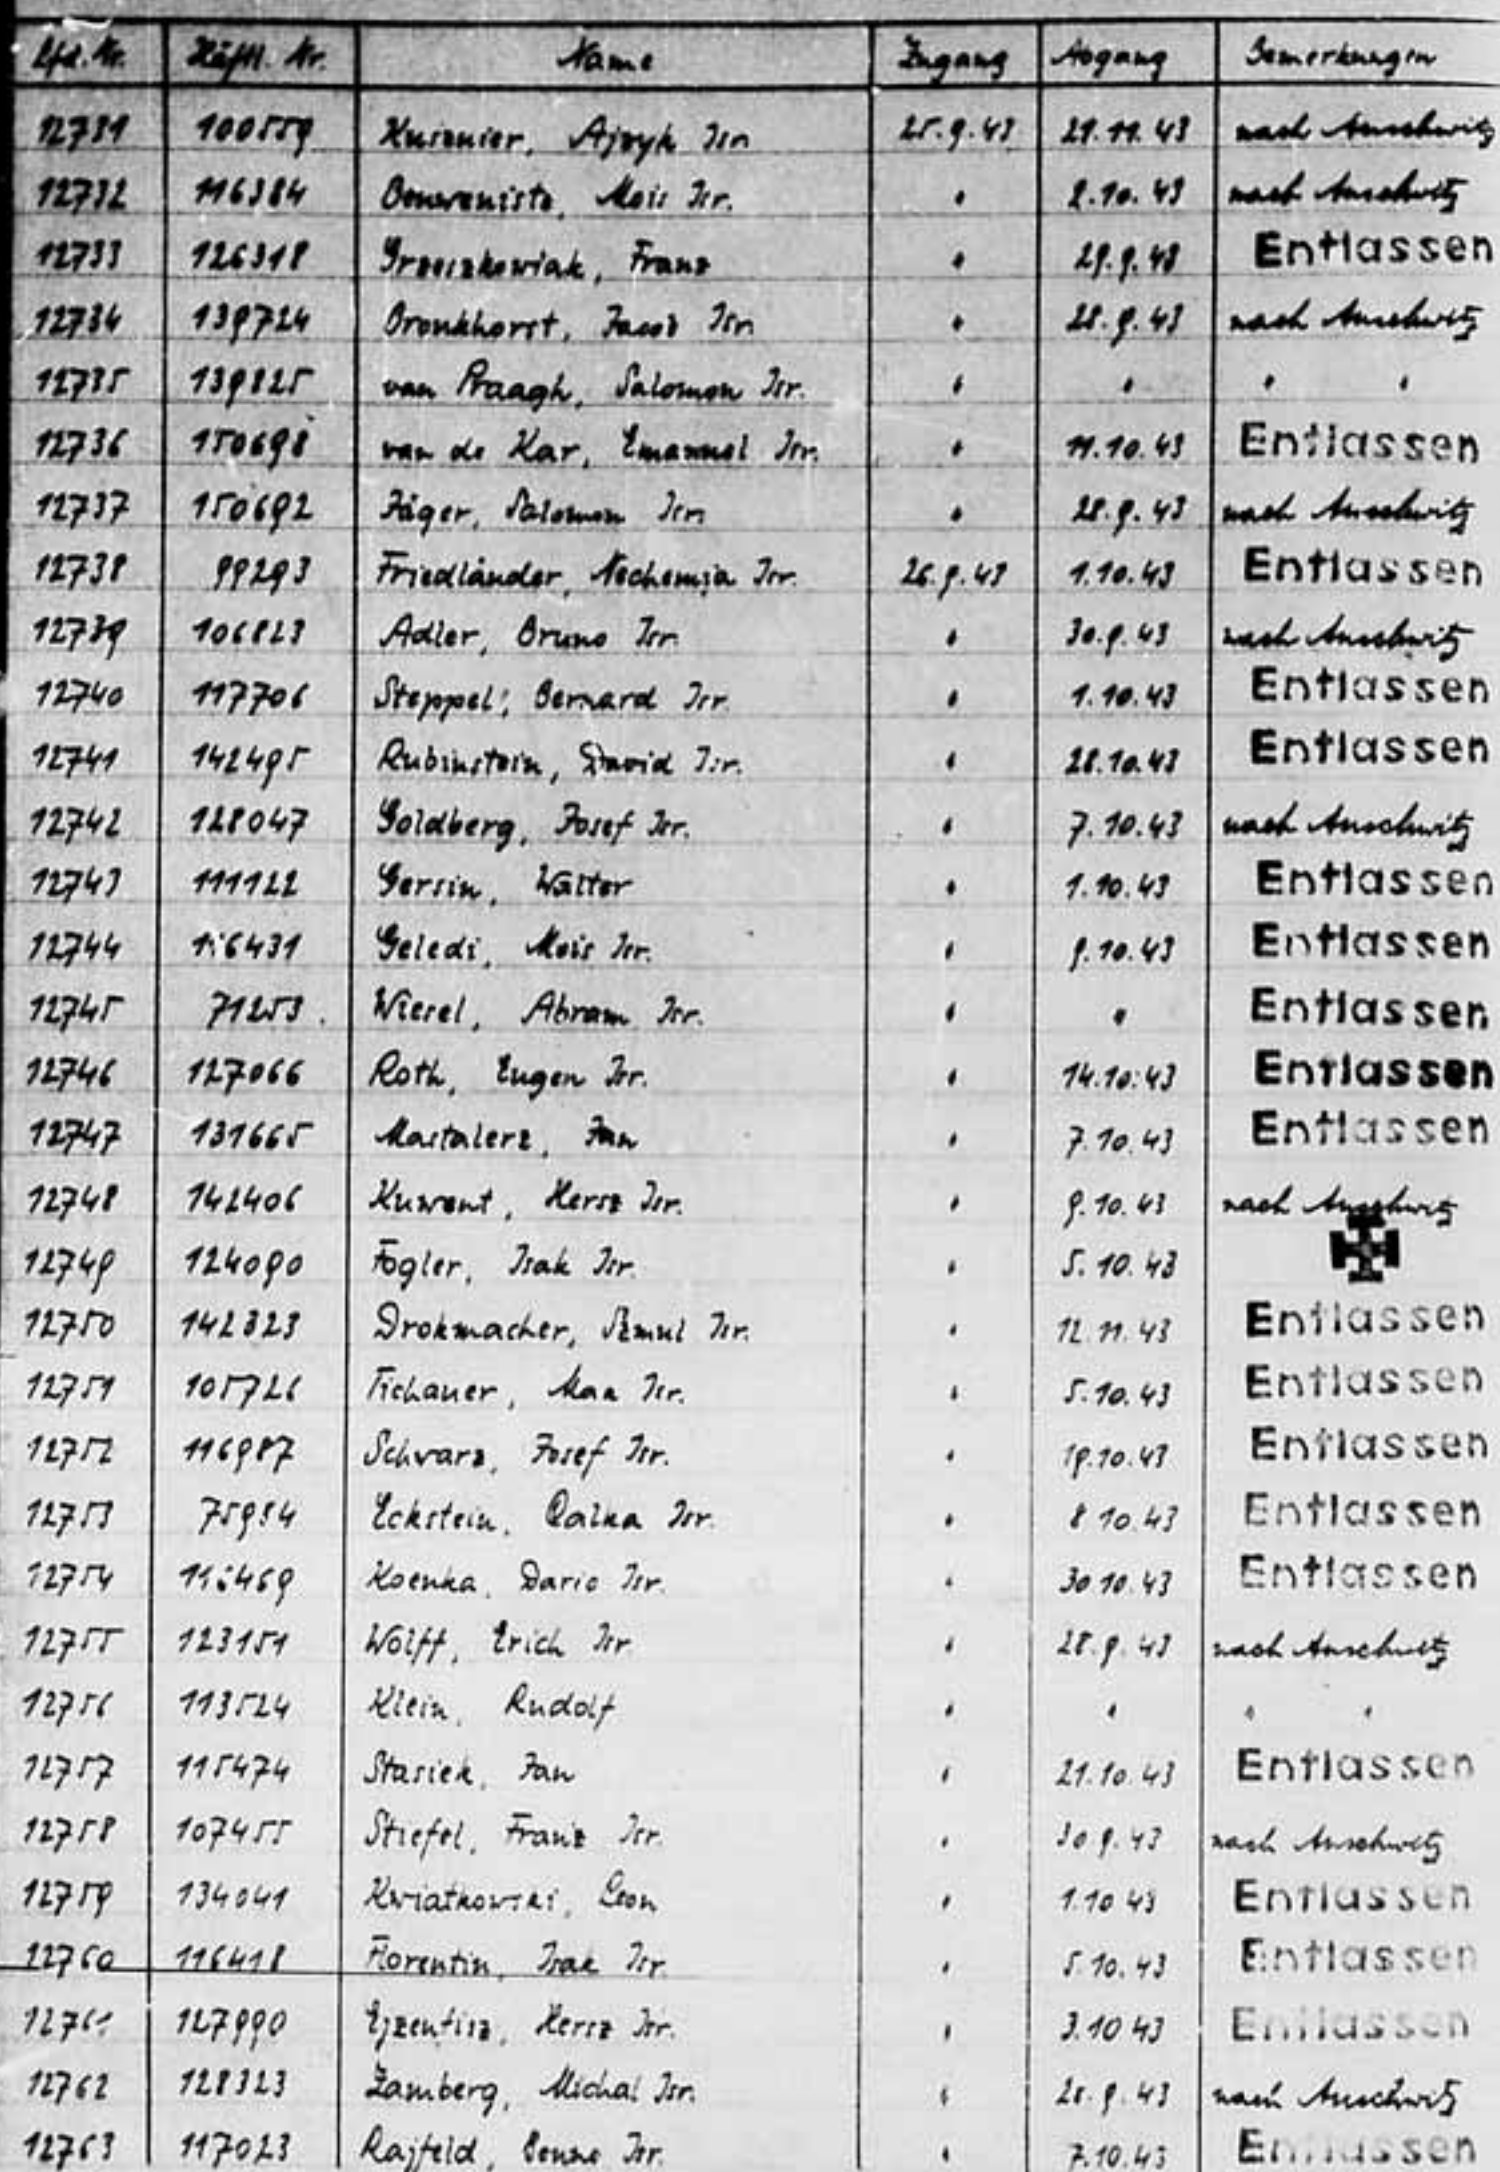 Lfd. Nr. Häftl. Nr. Name Zugang Abgang Bemerkungen
12731 100559 Kusznier, Ajzyk Isr. 25.9.43 29.11.43 nach Auschwitz
12732 116384 Benveniste, Mois Isr. " 2.10.43 nach Auschwitz
12733 126318 Grzeszkowiak, Franz " 29.9.43 Entlassen
12734 139724 Bronkhorst, Jacob Isr. " 28.9.43 nach Auschwitz
12735 139825 van Praagh, Salomon Isr. " " " "
12736 150698 van de Kar, Emanuel Isr. " 11.10.43 Entlassen
12737 150692 Jäger, Salomon Isr. " 28.9.43 nach Auschwitz
12738 99293 Friedländer, Nechemja Isr. 26.9.43 1.10.43 Entlassen
12739 106823 Adler, Bruno Isr. " 30.9.43 nach Auschwitz
12740 117706 Steppel, Bernard Isr. " 1.10.43 Entlassen
12741 142495 Rubinstein, David Isr. " 28.10.43 Entlassen
12742 128047 Goldberg, Josef Isr. " 7.10.43 nach Auschwitz
12743 111122 Gersin, Walter " 1.10.43 Entlassen
12744 116431 Geledi, Mois Isr. " 9.10.43 Entlassen
12745 71253 Wiesel, Abram Isr. " " Entlassen
12746 127066 Roth, Eugen Isr. " 14.10.43 Entlassen
12747 131665 Mastalerz, Jan " 7.10.43 Entlassen
12748 142406 Kuwent, Hersz Isr. " 9.10.43 nach Auschwitz
12749 124090 Fogler, Isak Isr. " 5.10.43
12750 142323 Drokmacher, Szmul Isr. " 12.11.43 Entlassen
12751 105726 Tichauer, Max Isr. " 5.10.43 Entlassen
12752 116987 Schwarz, Josef Isr. " 19.10.43 Entlassen
12753 75954 Eckstein, Isr. " 8.10.43 Entlassen
12754 Koenka, Dario Isr. " 30.10.43 Entlassen
12755 123151 Wolff, Erich Isr. " 28.9.43 nach Auschwitz
12756 113524 Klein, Rudolf " " " "
12757 115474 Stasiek, Jan " 21.10.43 Entlassen
12758 107455 Stiefel, Franz Isr. " 30.9.43 nach Auschwitz
12759 134041 Kwiatkowski, Leon " 1.10.43 Entlassen
12760 116418 Florentin, Isak Isr. " 5.10.43 Entlassen
12761 127990 Hersz Isr. " 3.10.43 Entlassen
12762 128323 Zamberg, Michal Isr. " 28.9.43 nach Auschwitz
12763 117023 Rajfeld, Benno Isr. " 7.10.43 Entlassen